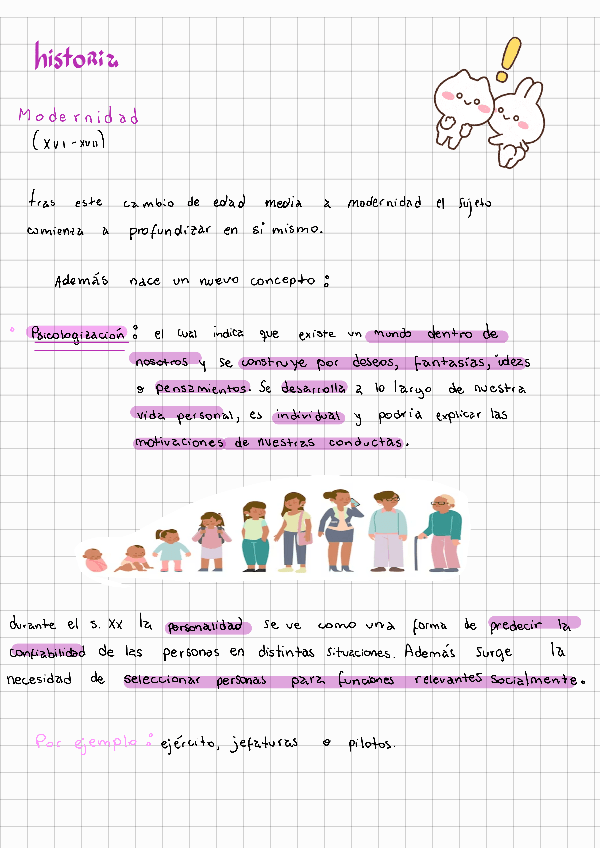 historia
Modernidad
(XVI - XVII)
tras este cambio de edad media a modernidad el sujeto
comienza a profundizar en si mismo.
Además nace un nuevo concepto:
Psicologización: el cual indica que existe un mundo dentro de
nosotros y se construye por deseos, fantasías, ideas
o pensamientos. Se desarrolla a lo largo de nuestra
vida personal, es individual y podría explicar las
motivaciones de nuestras conductas.
durante el s. XX la personalidad se ve como una forma de predecir la
confiabilidad de las personas en distintas situaciones. Además surge la
necesidad de seleccionar personas para funciones relevantes socialmente.
Por ejemplo: ejército, jefaturas o pilotos.